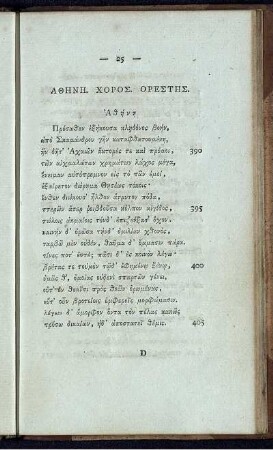 — 25 —
ΑΘΗΝΗ. ΧΟΡΟΣ. ΟΡΕΣΤΗΣ.
Ἀθήνη
Πρόσωθεν ἐξήκουσα κληδόνος βοήν,
ἀπὸ Σκαμάνδρου γῆν
ἣν δῆτ' Ἀχαιῶν ἄκτορές τε καὶ πρόμοι, 390
τῶν αἰχμαλώτων χρημάτων λάχος μέγα,
ἔνειμαν αὐτόπρεμνον εἰς τὸ πᾶν ἐμοὶ,
ἐξαίρετον δώρημα Θησέως τόκοις·
ἔνθεν διώκουσ' ἦλθον ἄτρυτον πόδα,
πτερῶν ἄτερ ῥοιβδοῦσα κόλπον αἰγίδος, 395
πώλοις ἀκμαίοις τόνδ' ἐπιζεύξασ' ὄχον.
καινὴν δ' ὁρῶσα τήνδ' ὁμιλίαν χθονὸς,
ταρβῶ μὲν οὐδὲν, θαῦμα δ' ὄμμασιν πάρα.
τίνες ποτ' ἐστέ; πᾶσι δ' ἐς κοινὸν λέγω·
βρέτας τε τοὐμὸν τῷδ' ἐφημένῳ ξένῳ, 400
ὑμᾶς θ', ὁμοίας οὐδενὶ σπαρτῶν γένει,
οὔτ' ἐν θεαῖσι πρὸς θεῶν ὁρωμένας,
οὔτ' οὖν βροτείοις ἐμφερεῖς μορφώμασιν.
λέγειν δ' ἄμορφον ὄντα τὸν πέλας κακῶς
πρόσω δικαίων, ἠδ' ἀποστατεῖ θέμις. 405
D